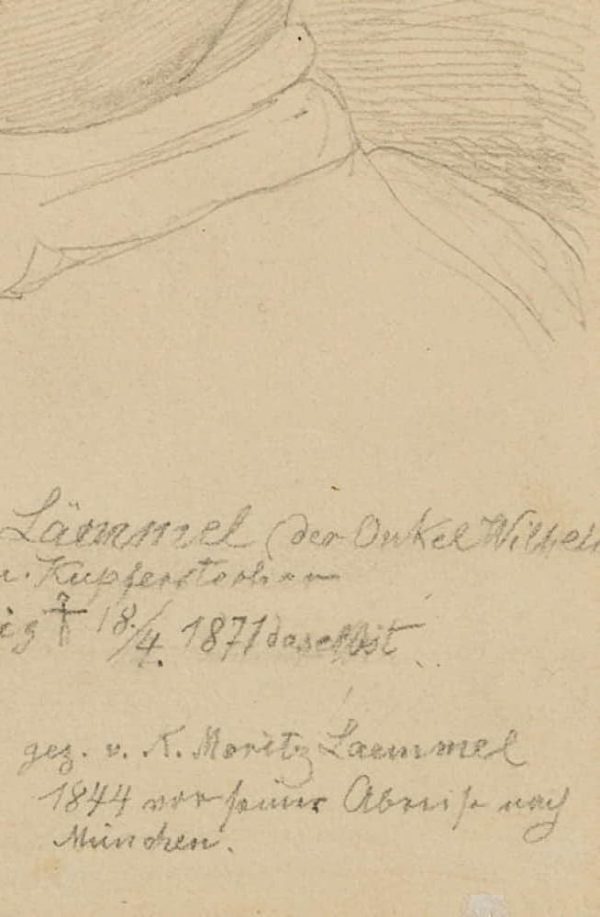 Lämmel (der Onkel Wilhel
u. Kupferstecher
ig † 18./4. 1871 daselbst
gez. v. K. Moritz Laemmel
1844 vor seiner Abreise nach
München.